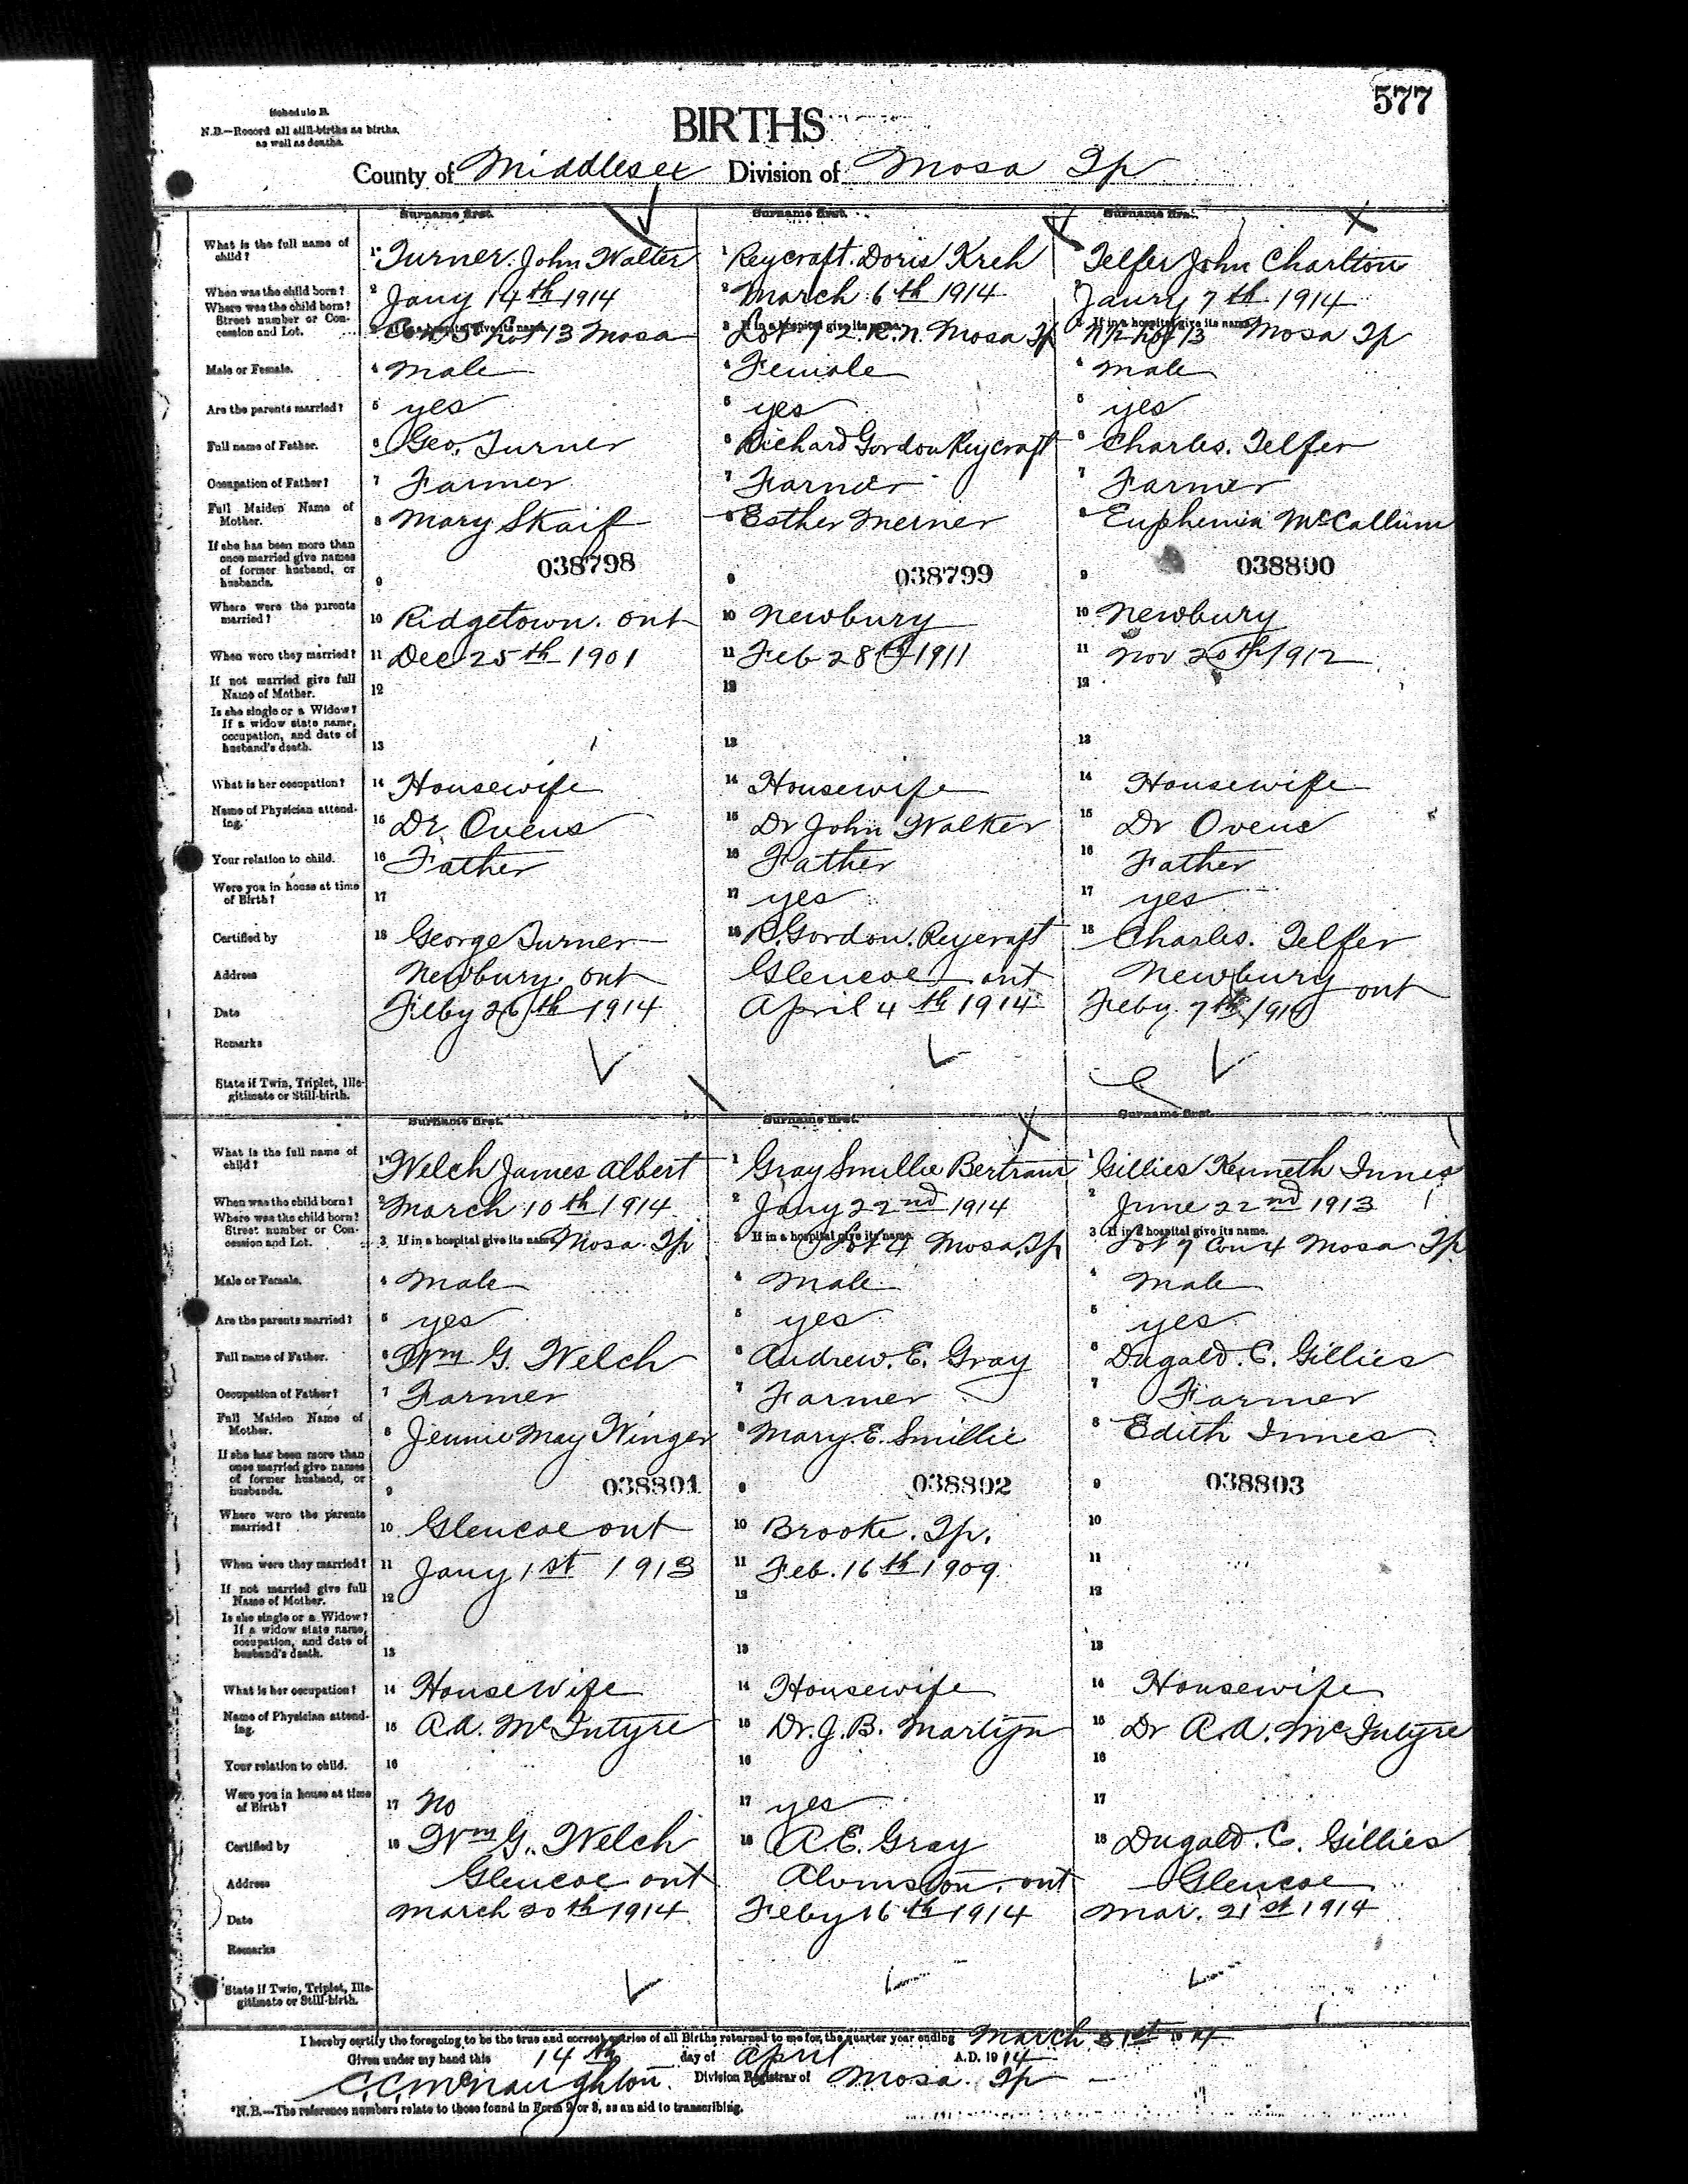 577
Schedule B.
N.B.—Record all still-births as births,
as well as deaths.
BIRTHS
County of Middlesex Division of Mosa Tp
Surname first. Surname first. Surname first.
What is the full name of child? 1 Turner. John Walter 1 Reycraft. Doris Kreh 1 Telfer John Charlton
When was the child born? 2 Jany 14th 1914 2 March 6th 1914 2 Jaury 7th 1914
Where was the child born? Street number or Concession and Lot. 3 If in a hospital give its name. Con 5 Lot 13 Mosa 3 If in a hospital give its name. Lot 7 2. R.N. Mosa Tp 3 If in a hospital give its name. N½ Lot 13 Mosa Tp
Male or Female. 4 Male 4 Female 4 Male
Are the parents married? 5 yes 5 yes 5 yes
Full name of Father. 6 Geo. Turner 6 Richard Gordon Reycraft 6 Charles. Telfer
Occupation of Father? 7 Farmer 7 Farmer 7 Farmer
Full Maiden Name of Mother. 8 Mary Skaif 8 Esther Merner 8 Euphemia McCallum
If she has been more than once married give names of former husband, or husbands. 9 038798 9 038799 9 038800
Where were the parents married? 10 Ridgetown. Ont 10 Newbury 10 Newbury
When were they married? 11 Dec 25th 1901 11 Feb 28th 1911 11 Nov 20th 1912
If not married give full Name of Mother. 12 12 12
Is she single or a Widow? If a widow state name, occupation, and date of husband's death. 13 13 13
What is her occupation? 14 Housewife 14 Housewife 14 Housewife
Name of Physician attending. 15 Dr. Ovens 15 Dr John Walker 15 Dr Ovens
Your relation to child. 16 Father 16 Father 16 Father
Were you in house at time of Birth? 17 17 yes 17 yes
Certified by 18 George Turner 18 R. Gordon. Reycraft 18 Charles. Telfer
Address Newbury. Ont Glencoe Ont Newbury Ont
Date Feby 26th 1914 April 4th 1914 Feby. 7th 1914
Remarks
State if Twin, Triplet, Illegitimate or Still-birth.
Surname first. Surname first. Surname first.
What is the full name of child? 1 Welch James Albert 1 Gray Smillie Bertram 1 Gillies Kenneth Innes
When was the child born? 2 March 10th 1914 2 Jany 22nd 1914 2 June 22nd 1913
Where was the child born? Street number or Concession and Lot. 3 If in a hospital give its name. Mosa Tp 3 If in a hospital give its name. Lot 4 Mosa. Tp 3 If in a hospital give its name. Lot 7 Con 4 Mosa Tp
Male or Female. 4 Male 4 Male 4 Male
Are the parents married? 5 yes 5 yes 5 yes
Full name of Father. 6 Wm G. Welch 6 Andrew. E. Gray 6 Dugald. C. Gillies
Occupation of Father? 7 Farmer 7 Farmer 7 Farmer
Full Maiden Name of Mother. 8 Jennie May Winger 8 Mary. E. Smillie 8 Edith Innes
If she has been more than once married give names of former husband, or husbands. 9 038801 9 038802 9 038803
Where were the parents married? 10 Glencoe Ont 10 Brooke. Tp. 10
When were they married? 11 Jany 1st 1913 11 Feb. 16th 1909 11
If not married give full Name of Mother. 12 12 12
Is she single or a Widow? If a widow state name, occupation, and date of husband's death. 13 13 13
What is her occupation? 14 HouseWife 14 Housewife 14 Housewife
Name of Physician attending. 15 A.A. McIntyre 15 Dr. J. B. Martyn 15 Dr A.A. McIntyre
Your relation to child. 16 16 16
Were you in house at time of Birth? 17 No 17 yes 17
Certified by 18 Wm G. Welch 18 A.E. Gray 18 Dugald. C. Gillies
Address Glencoe Ont Alvinston. Ont Glencoe
Date March 20th 1914 Feby 16th 1914 Mar. 21st 1914
Remarks
State if Twin, Triplet, Illegitimate or Still-birth.
I hereby certify the foregoing to be the true and correct entries of all Births returned to me for the quarter year ending March 31st 1914
Given under my hand this 14th day of April A.D. 1914
C.C. McNaughton. Division Registrar of Mosa. Tp
*N.B.—The reference numbers relate to those found in Form 2 or 3, as an aid to transcribing.